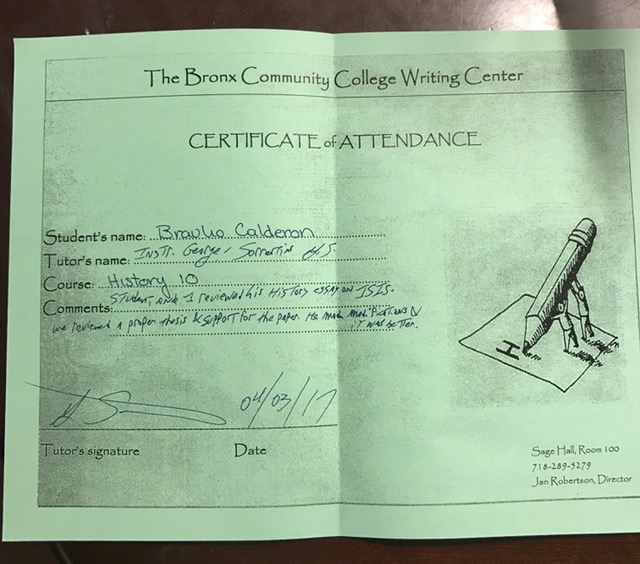 The Bronx Community College Writing Center
CERTIFICATE of ATTENDANCE
Student's name: Braulio Calderon
Tutor's name: Instr. George
Course: History 10
Comments: Student and I reviewed his History essay on ISIS.
we reviewed a proper thesis & support for the paper. He made modifications &
it was better.
H
04/03/17
Tutor's signature Date
Sage Hall, Room 100
718-289-5279
Jan Robertson, Director